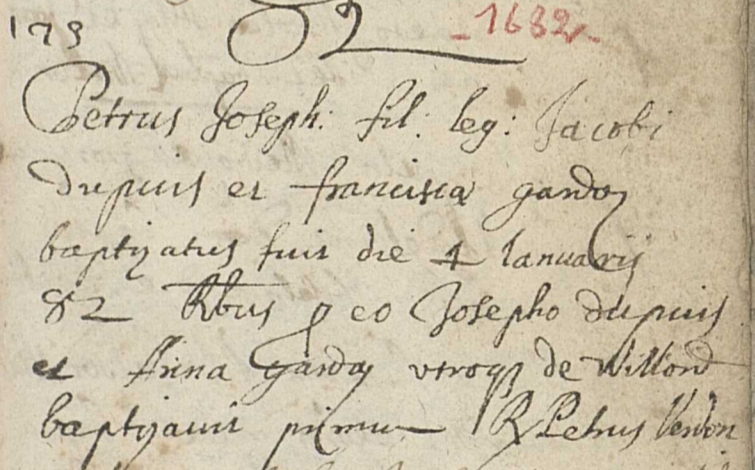 173 82 -1682-
Petrus Joseph: fil: leg: Jacobi
dupuis et francisca gardoy
baptizatus fuit die 4 Ianuarij
82 Rbus p eo Josepho dupuis
et Anna gardoy utroq de Willond
baptizavit primum R Petrus Verdon